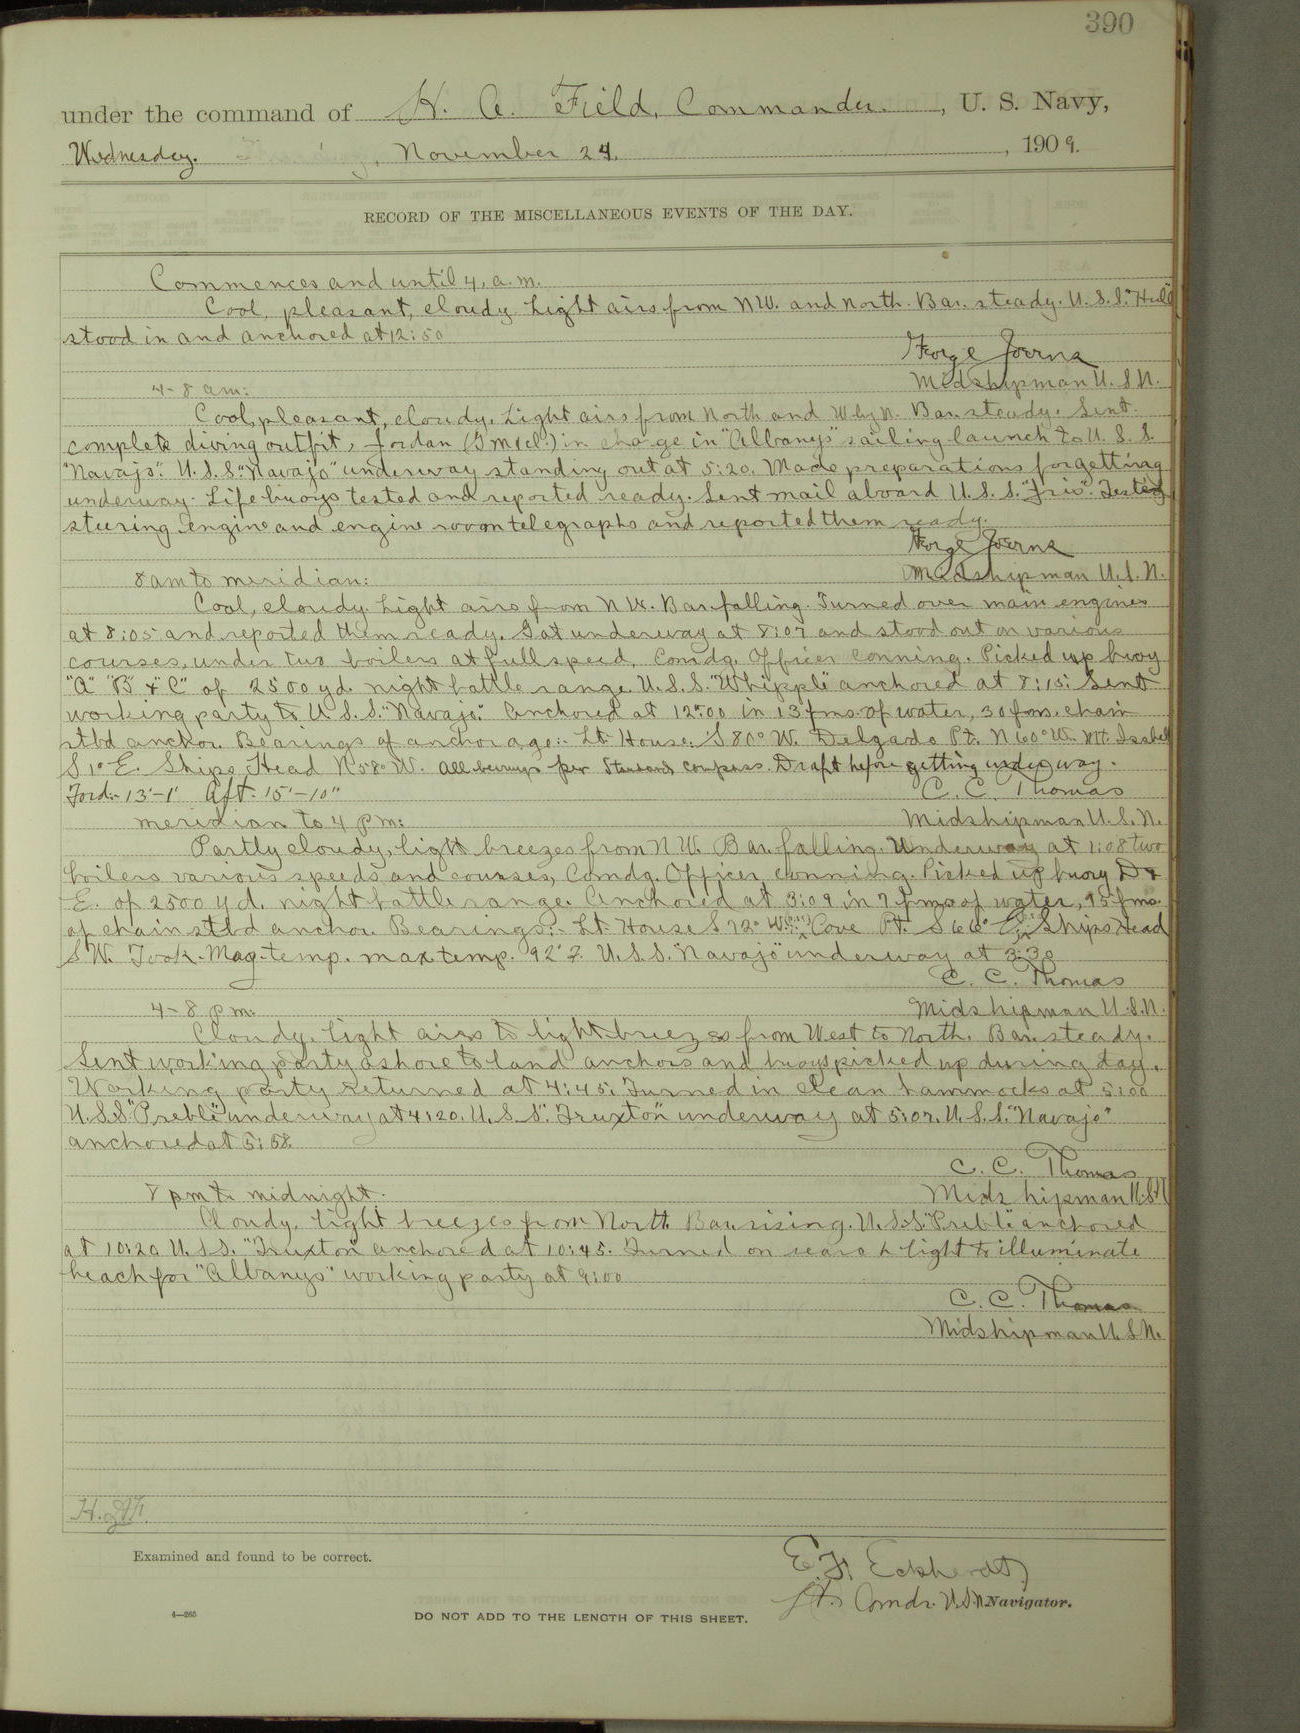 390
under the command of H. A. Field, Commander. , U. S. Navy,
Wednesday. , November 24, , 1909.
RECORD OF THE MISCELLANEOUS EVENTS OF THE DAY.
Commences and until 4, a.m.
Cool, pleasant, cloudy. Light airs from NW. and north. Bar. steady. U.S.S. "Hull"
stood in and anchored at 12:50
George Joerns
Midshipman U.S.N.
4-8 am:
Cool, pleasant, cloudy. Light airs from North and W by N. Bar. steady. Sent
complete diving outfit, Jordan (G.M.1cl.) in charge in "Albanys" sailing launch to U.S.S.
"Navajo". U.S.S. "Navajo" underway standing out at 5:20. Made preparations for getting
underway. Life buoys tested and reported ready. Sent mail aboard U.S.S. "Iris". Tested
steering engine and engine room telegraphs and reported them ready.
George Joerns
Midshipman U.S.N.
8 am to meridian:
Cool, cloudy. Light airs from NW. Bar. falling. Turned over main engines
at 8:05 and reported them ready. Got underway at 8:07 and stood out on various
courses, under two boilers at full speed, Comdg. Officer conning. Picked up buoy
"A" "B" & "C" of 2500 yd. night battle range. U.S.S. "Whipple" anchored at 8:15. Sent
working party to U.S.S. "Navajo". Anchored at 12:00 in 13 fms. of water, 30 fms. chain
stbd anchor. Bearings of anchorage:- Lt. House: S 80° W. Delgado Pt. N 60° W. Mt. Isabel
S 1° E. Ships Head N 58° W. All bearings per Standard compass. Draft before getting underway.
Ford:- 13'-1" Aft. 15'-10"
C. C. Thomas
Midshipman U.S.N.
meridian to 4 pm:
Partly cloudy, light breezes from NW. Bar. falling. Underway at 1:08 two
boilers various speeds and courses, Comdg. Officer conning. Picked up buoy D &
E. of 2500 yd. night battle range. Anchored at 3:09 in 7 fms of water, 45 fms.
of chain stbd anchor. Bearings:- Lt. House S 72° W. Cove Pt. S 66° E. Ships Head
S W. Took Mag. temp. max temp. 92° F. U.S.S. "Navajo" underway at 3:30
C. C. Thomas
Midshipman U.S.N.
4-8 pm:
Cloudy. light airs to light breezes from West to North. Bar. steady.
Sent working party ashore to land anchors and buoys picked up during day.
Working party returned at 4:45. Turned in clean hammocks at 5:00
U.S.S. "Preble" underway at 4:20. U.S.S. "Truxton" underway at 5:07. U.S.S. "Navajo"
anchored at 5:58.
C. C. Thomas
Midshipman U.S.N.
8 pm to midnight.
Cloudy, light breezes from North. Bar. rising. U.S.S. "Preble" anchored
at 10:20 U.S.S. "Truxton" anchored at 10:45. Turned on search light to illuminate
beach for "Albanys" working party at 9:00
C. C. Thomas
Midshipman U.S.N.
Examined and found to be correct.
E. F. Eckhardt
Lt. Comdr. U.S.N. Navigator.
4—265
DO NOT ADD TO THE LENGTH OF THIS SHEET.